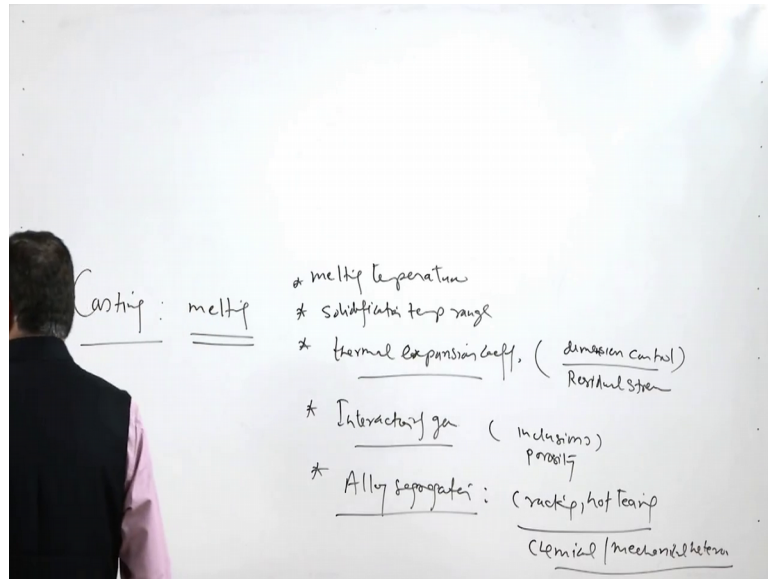 Casting : melting
* melting temperature
* Solidification temp range
* thermal expansion coeff. ( dimension control )
Residual stress
* Interaction gas ( inclusions )
porosity
* Alloy segregation : Cracking, hot tearing
Chemical / mechanical hetero